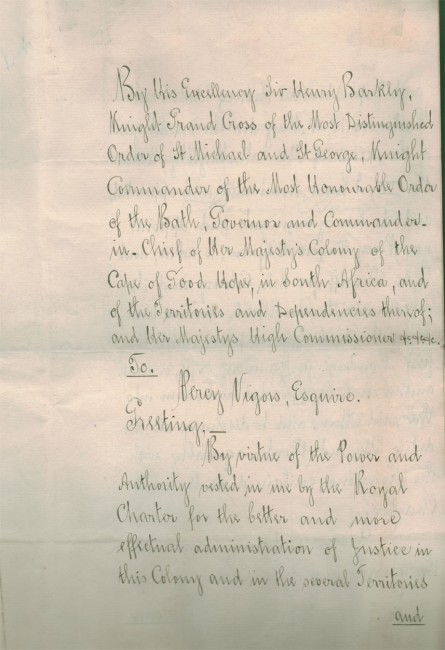 By His Excellency Sir Henry Barkly,
Knight Grand Cross of the Most Distinguished
Order of St Michael and St George, Knight
Commander of the Most Honourable Order
of the Bath, Governor and Commander-
in-Chief of Her Majesty's Colony of the
Cape of Good Hope, in South Africa, and
of the Territories and Dependencies thereof;
and Her Majesty's High Commissioner &c &c &c.
To.
Percy Vigors, Esquire.
Greeting.—
By virtue of the Power and
Authority vested in me by the Royal
Charter for the better and more
effectual administration of Justice in
this Colony and in the several Territories
and